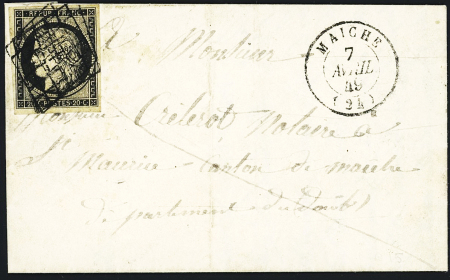 REPUB. FRANC.
20 POSTES 20 C
MAICHE
7
AVRIL
49
(24)
A Monsieur
Monsieur Notaire à
St Maurice canton de maiche
département du Doubs